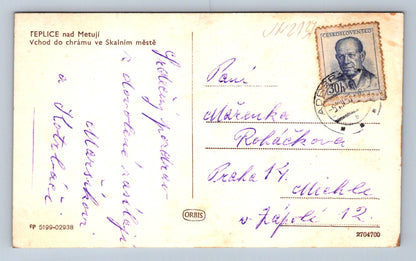 TEPLICE nad Metují
Vchod do chrámu ve Skalním městě
ČESKOSLOVENSKO
30h
Srdečný pozdrav
z dovolené zasílají
Maršíkovi
a Kotrbáčci
Paní
Mařenka
Roháčková
Praha 14.
Michle
v Zápolí 12.
ORBIS
VP 5199-02938
2704700